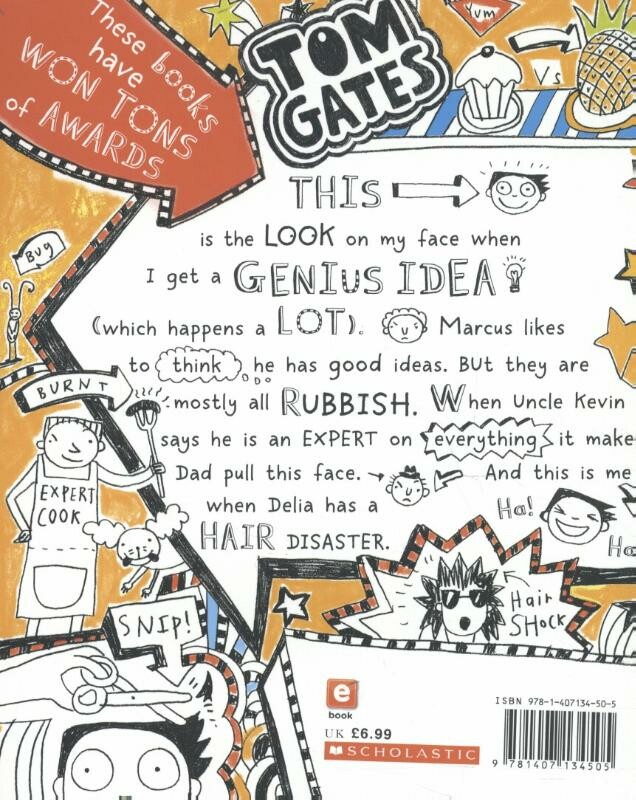 These books
have
WON TONS
of AWARDS
TOM
GATES
Yum
Vs
THIS
is the LOOK on my face when
I get a GENIUS IDEA
(which happens a LOT). Marcus likes
to think he has good ideas. BUt they are
mostly all RUBBISH. When Uncle Kevin
says he is an EXPERT on everything it make
Dad pull this face. And this is me
when Delia has a
HAIR DISASTER.
Ha!
Ha
Bug
BURNT
EXPERT
COOK
SNIP!
Hair
SHock
e
book
UK £6.99
SCHOLASTIC
ISBN 978-1-407134-50-5
9 781407 134505